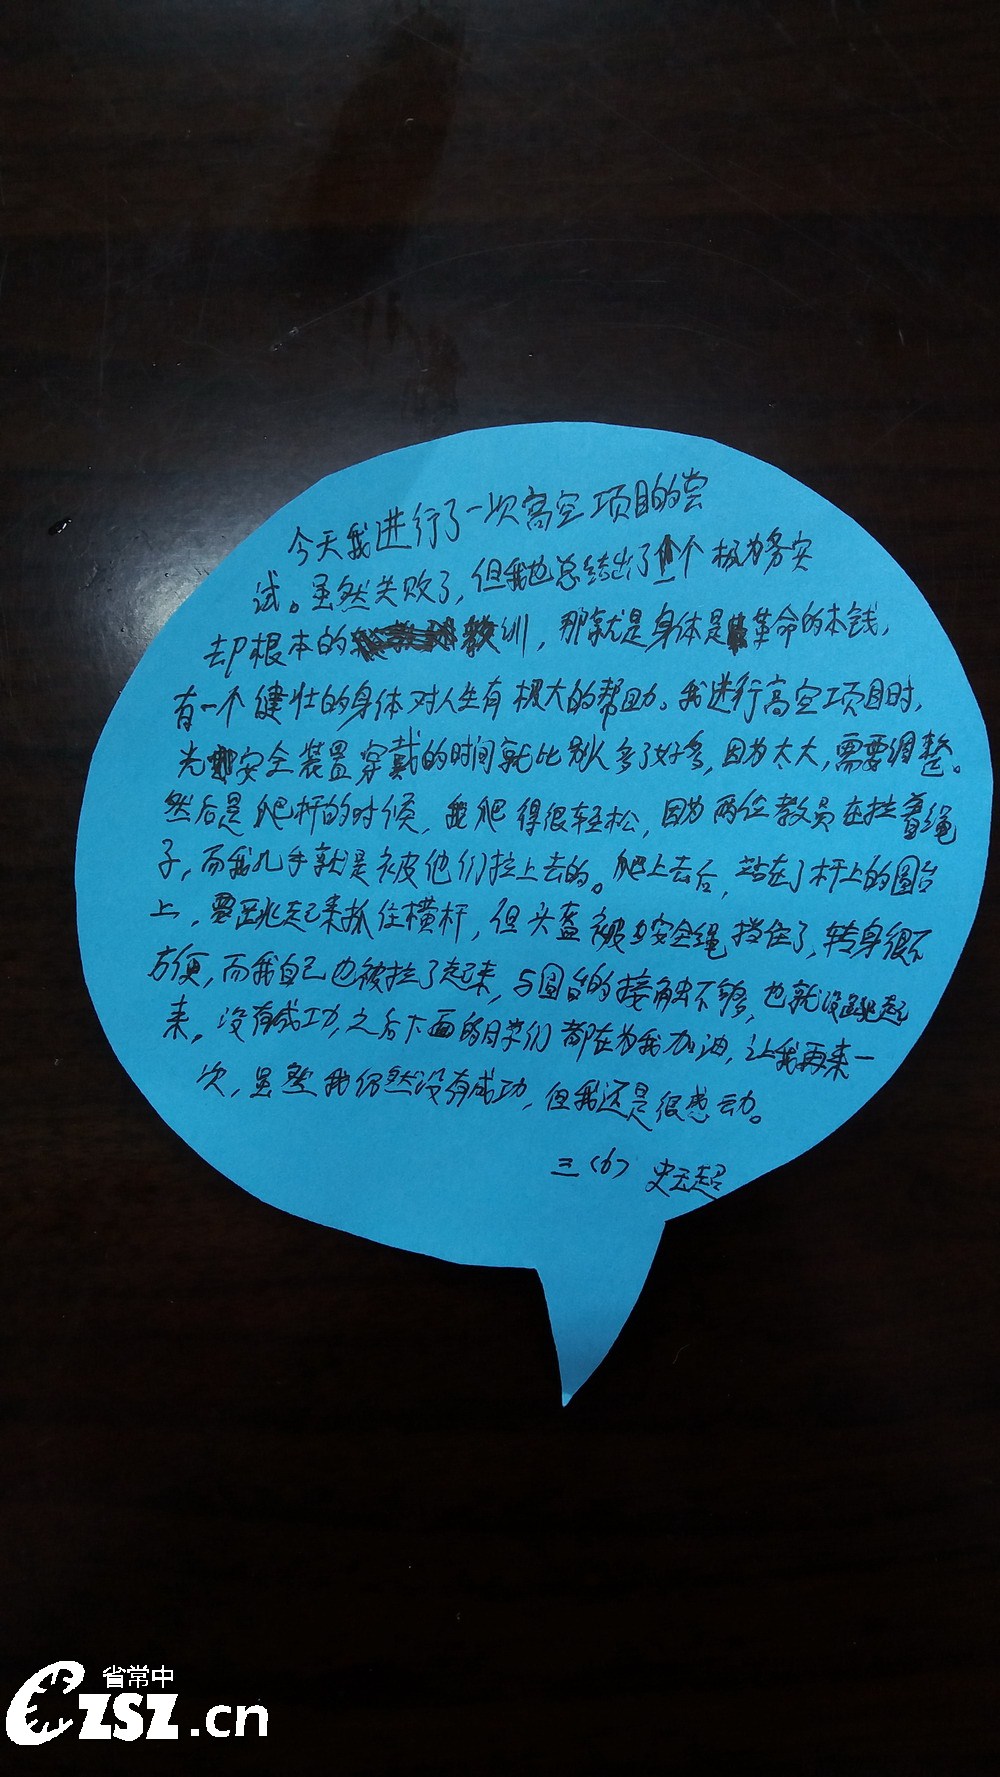 今天我进行了一次高空项目的尝
试。虽然失败了，但我也总结出了个极为务实
却根本的教训，那就是身体是革命的本钱，
有一个健壮的身体对人生有极大的帮助。我进行高空项目时，
光安全装置穿戴的时间就比别人多了好多，因为太大，需要调整。
然后是爬杆的时候，我爬得很轻松，因为两位教员在拉着绳
子，而我几乎就是被他们拉上去的。爬上去后，站在了杆上的圆台
上，要跳起来抓住横杆，但头盔被安全绳挡住了，转身很不
方便，而我自己也被拉了起来，与圆台的接触不够，也就没跳起
来。没有成功，之后下面的同学们都在为我加油，让我再来一
次，虽然我仍然没有成功，但我还是很感动。
三（6） 史云超
省常中
CZSZ.cn